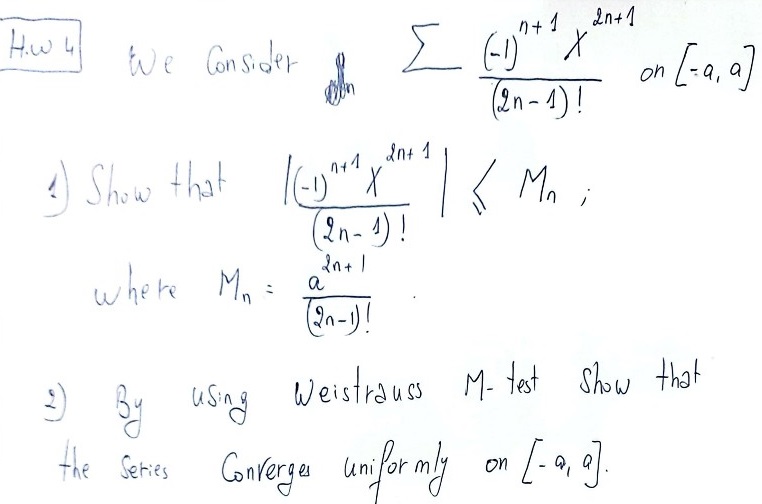 H.w 4 We Consider ∑ (-1)^{n+1} X^{2n+1} / (2n-1)! on [-a, a]
1) Show that |(-1)^{n+1} X^{2n+1} / (2n-1)!| ⩽ Mn ;
where Mn = a^{2n+1} / (2n-1)! .
2) By using Weistrauss M-test Show that
the Series Converges uniformly on [-a, a].